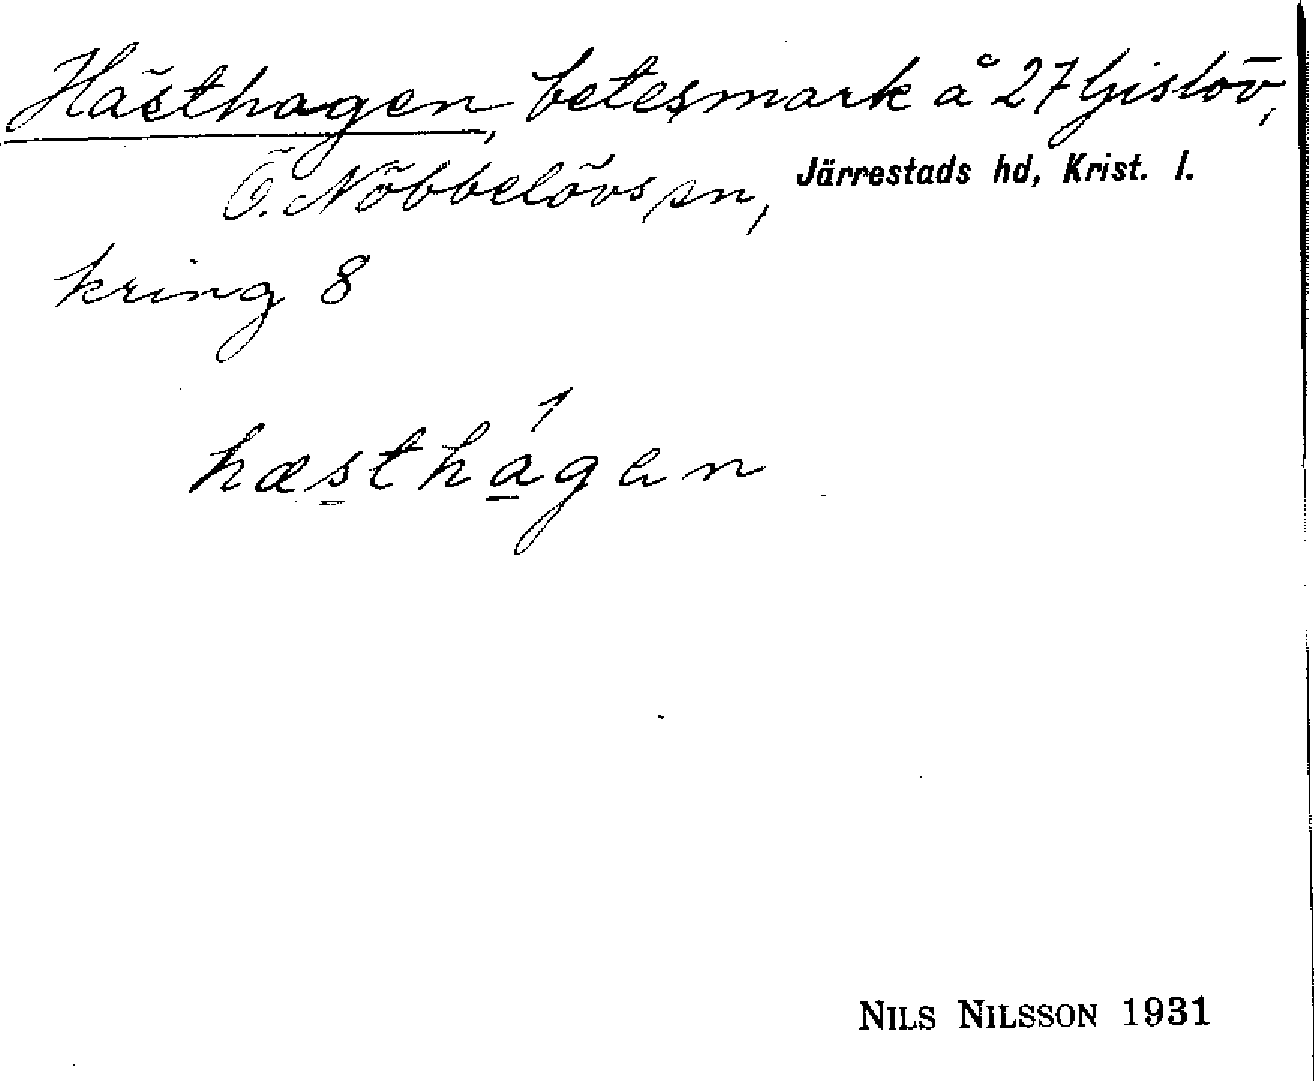 Hästhagen, betesmark å 27 Gislöv,
Ö. Nöbbelövs sn, Järrestads hd, Krist. l.
kring 8
hæsthágen
NILS NILSSON 1931